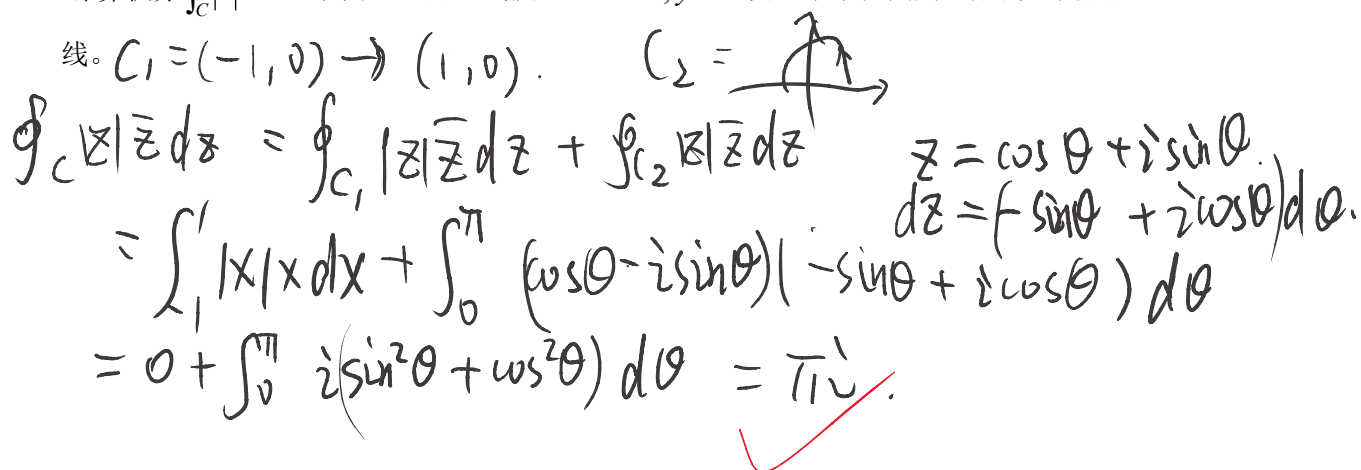 线。C₁ = (-1, 0) → (1, 0). C₂ =
∮_C |z| z̄ dz = ∮_{C₁} |z| z̄ dz + ∮_{C₂} |z| z̄ dz
z = cosθ + i sinθ.
dz = (-sinθ + i cosθ) dθ.
= ∫_{-1}^{1} |x| x dx + ∫_0^π (cosθ - i sinθ)(-sinθ + i cosθ) dθ
= 0 + ∫_0^π i(sin²θ + cos²θ) dθ = πi.